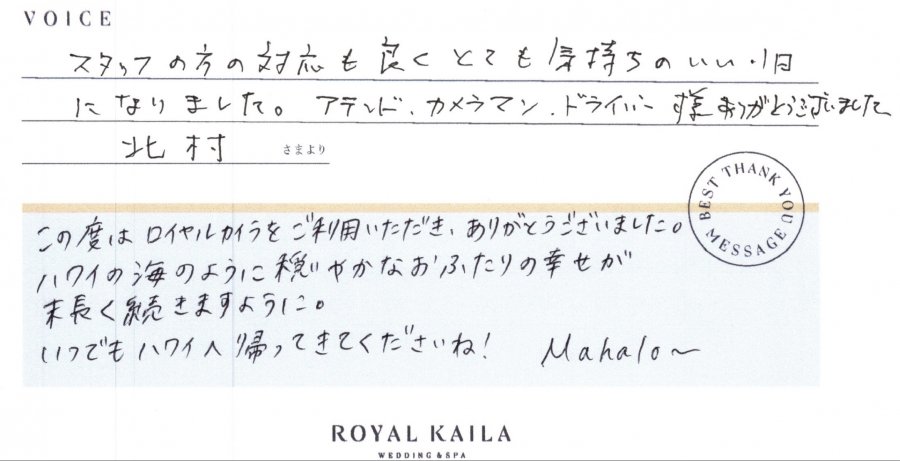 VOICE
スタッフの方の対応も良くとても気持ちのいい1日
になりました。アテンド、カメラマン、ドライバー様ありがとうございました
北村 さまより
BEST THANK YOU MESSAGE
この度はロイヤルカイラをご利用いただき、ありがとうございました。
ハワイの海のように穏やかなおふたりの幸せが
末長く続きますように。
いつでもハワイへ帰ってきてくださいね!  Mahalo〜
ROYAL KAILA
WEDDING & SPA